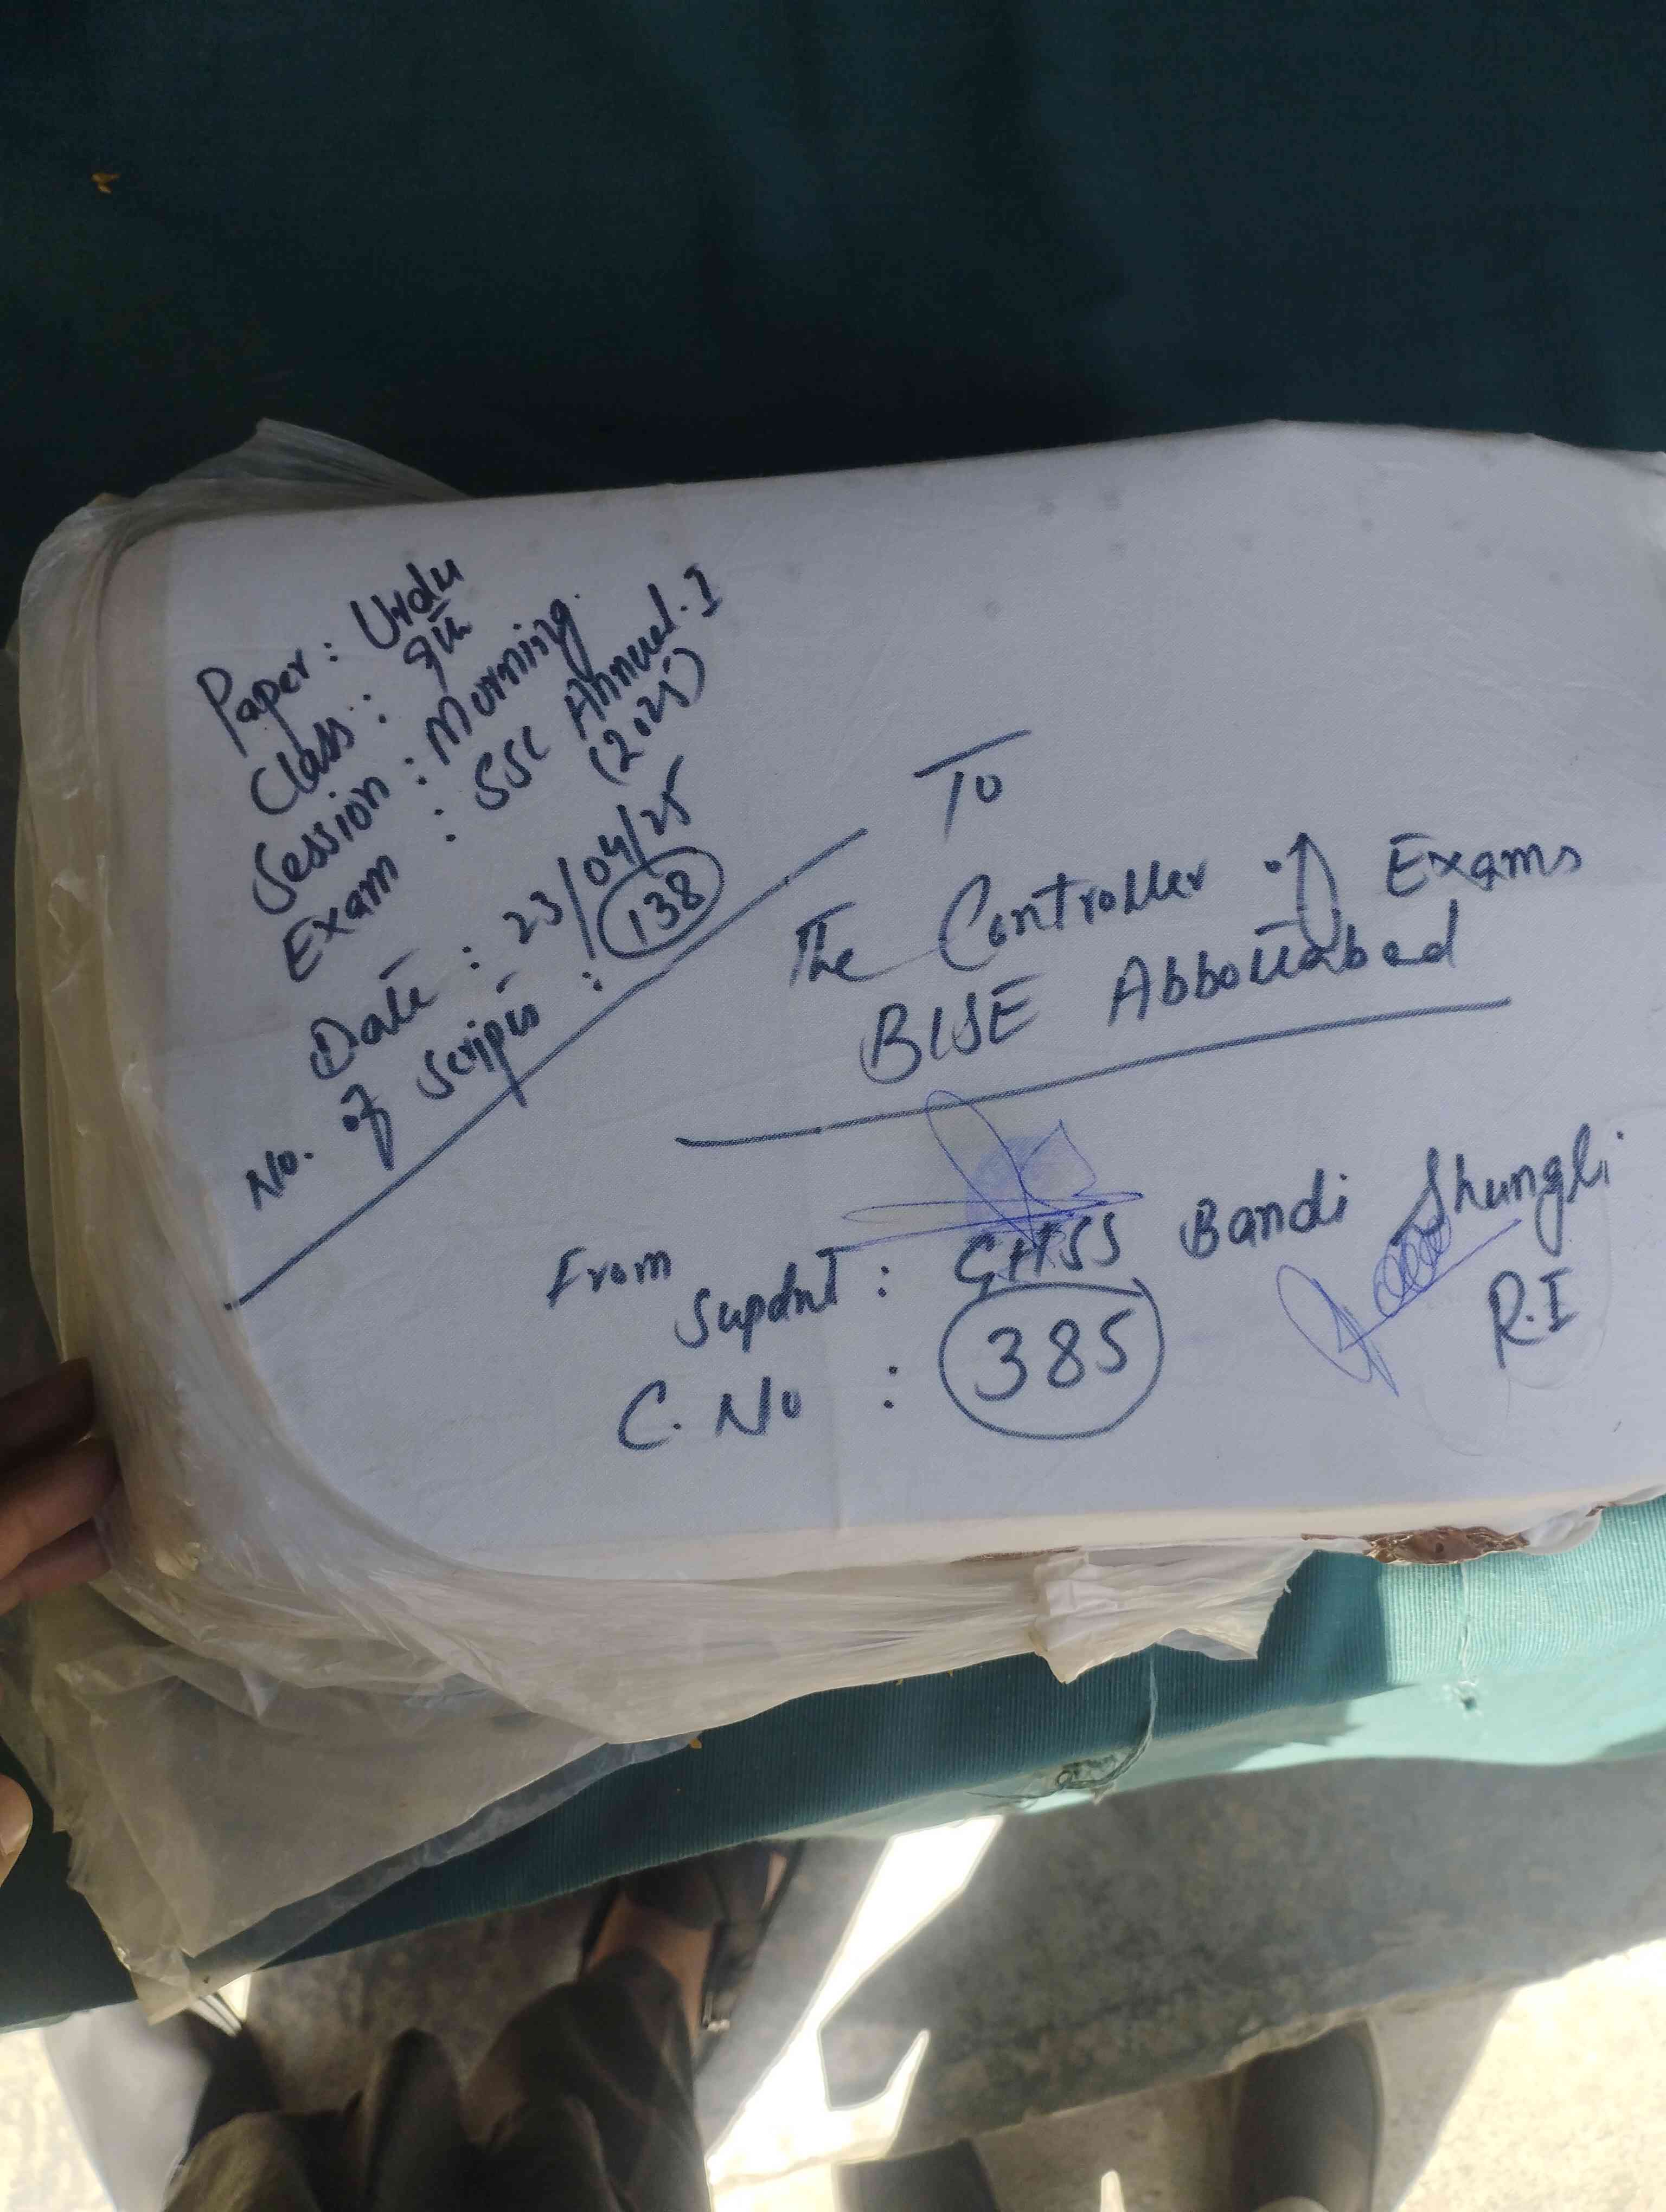 Paper : Urdu
Class : 9th
Session : Morning.
Exam : SSC Annual.I
(2025)
Date : 23/04/25
No. of Scripts : 138
To
The Controller of Exams
BISE Abbottabad
From
Supdnt : GHSS Bandi Shungli
C. No : 385
R.I